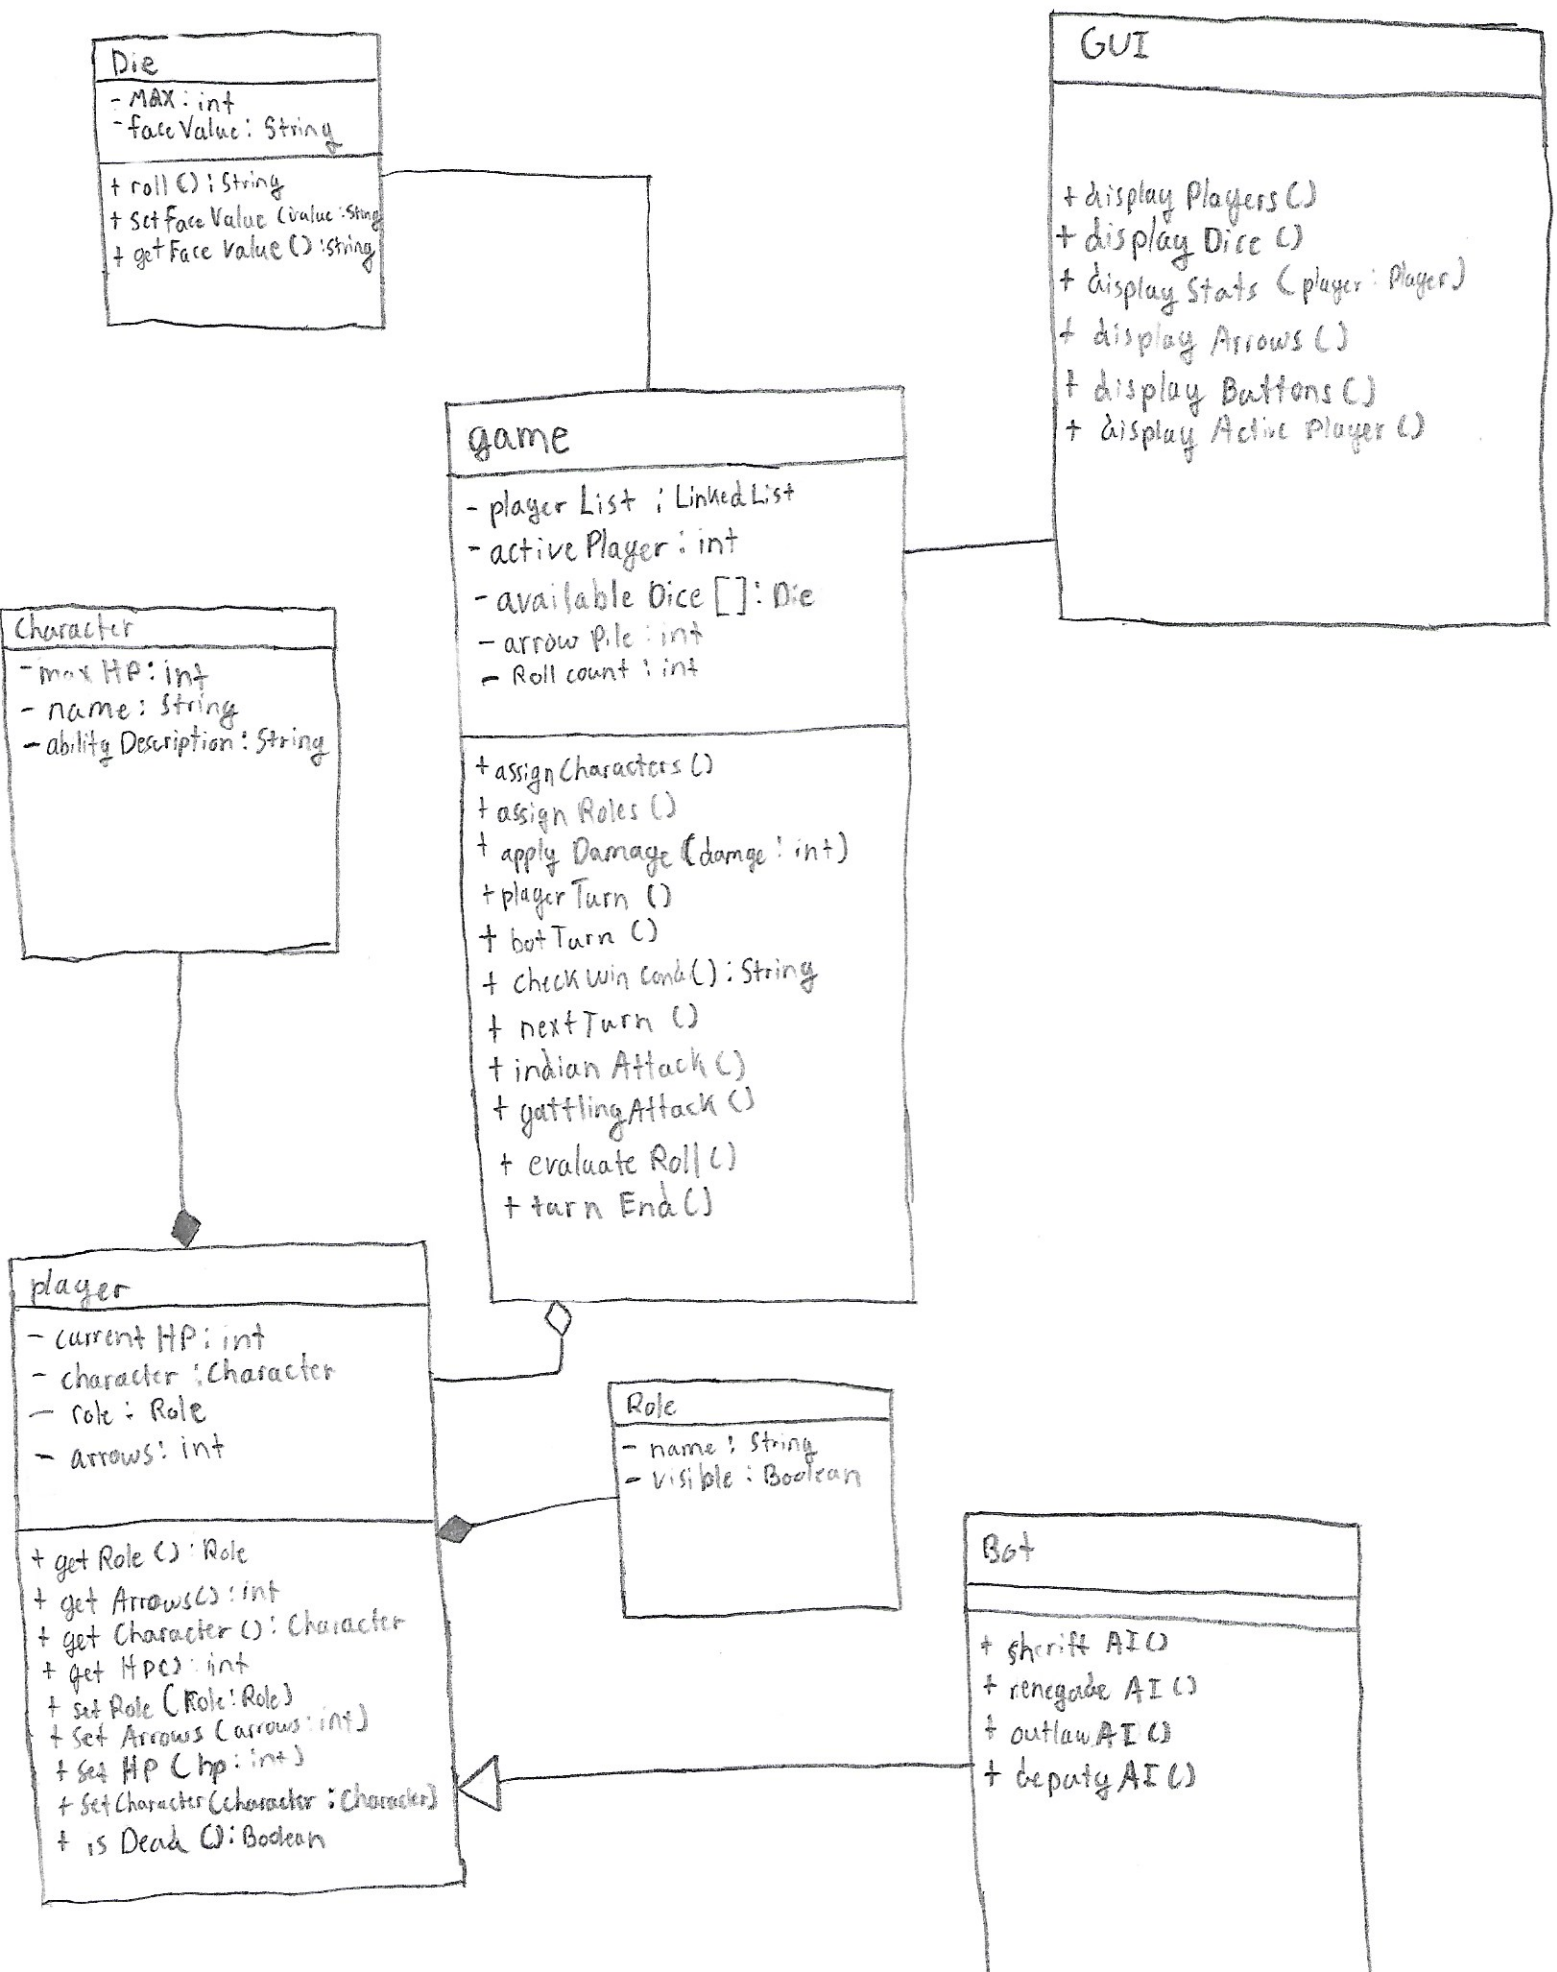 Die
- MAX : int
- faceValue : String
+ roll () : String
+ setFace Value (value : String
+ getFace Value () : String
GUI
+ display Players ()
+ display Dice ()
+ display Stats (player : Player)
+ display Arrows ()
+ display Buttons ()
+ display Active Player ()
game
- player List : LinkedList
- active Player : int
- available Dice [] : Die
- arrow Pile : int
- Roll count : int
+ assign Characters ()
+ assign Roles ()
+ apply Damage (damge : int)
+ player Turn ()
+ bot Turn ()
+ check Win Cond () : String
+ next Turn ()
+ indian Attack ()
+ gattling Attack ()
+ evaluate Roll ()
+ turn End ()
Character
- max HP : int
- name : String
- ability Description : String
player
- current HP : int
- character : Character
- role : Role
- arrows : int
+ get Role () : Role
+ get Arrows () : int
+ get Character () : Character
+ get HP () : int
+ set Role (Role : Role)
+ set Arrows (arrows : int)
+ set HP (hp : int)
+ set Character (character : Character)
+ is Dead () : Boolean
Role
- name : String
- visible : Boolean
Bot
+ sheriff AI ()
+ renegade AI ()
+ outlaw AI ()
+ deputy AI ()